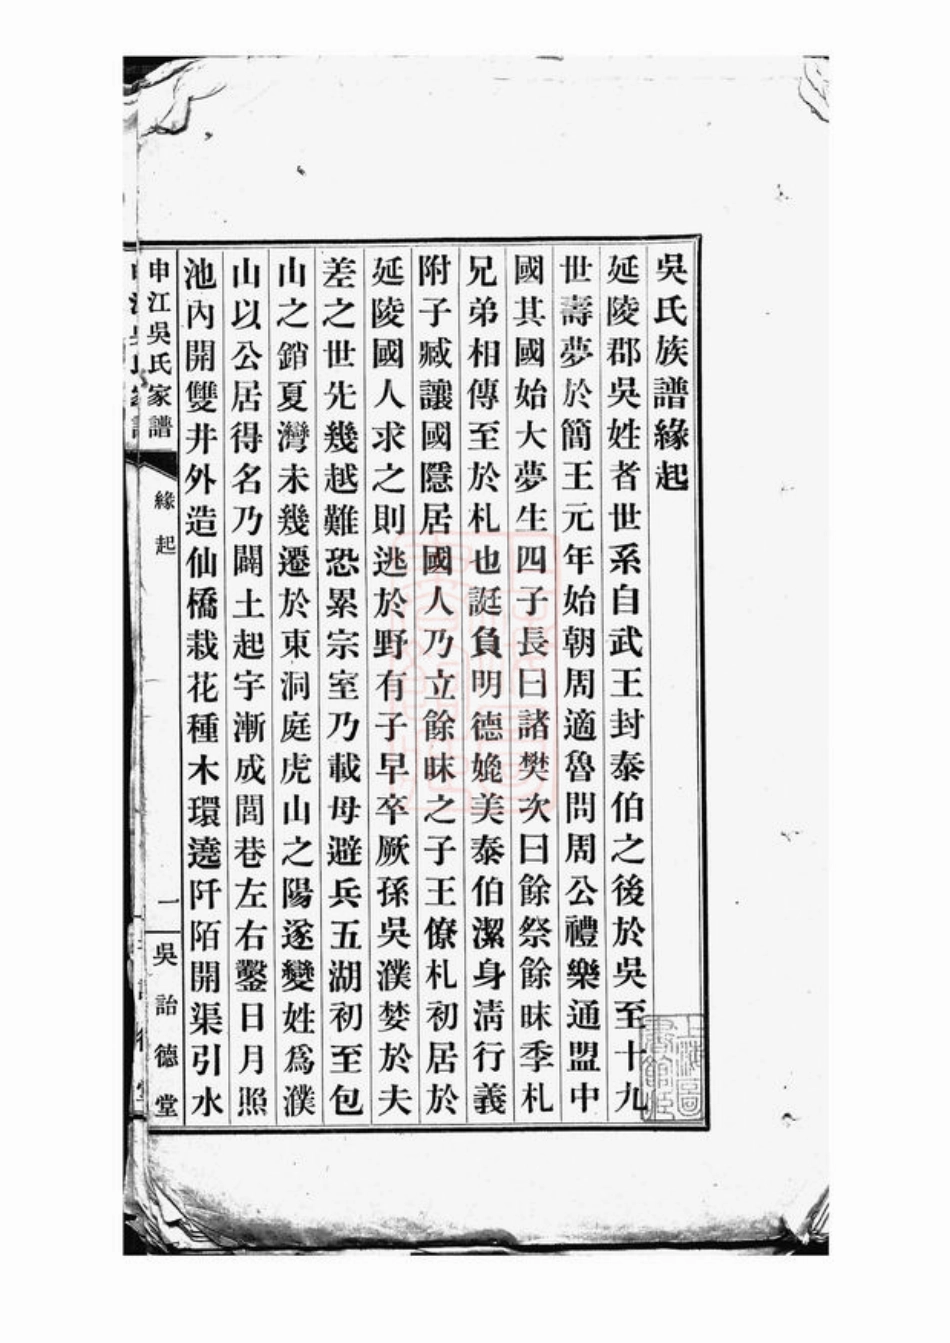 吳氏族譜緣起
延陵郡吳姓者世系自武王封泰伯之後於吳至十九
世壽夢於簡王元年始朝周適魯問周公禮樂通盟中
國其國始大夢生四子長曰諸樊次曰餘祭餘昧季札
兄弟相傳至於札也誕負明德媲美泰伯潔身清行義
附子臧讓國隱居國人乃立餘昧之子王僚札初居於
延陵國人求之則逃於野有子早卒厥孫吳濮婪於夫
差之世先幾越難恐累宗室乃載母避兵五湖初至包
山之銷夏灣未幾遷於東洞庭虎山之陽遂變姓為濮
山以公居得名乃闢土起宇漸成閭巷左右鑿日月照
池內開雙井外造仙橋栽花種木環遶阡陌開渠引水
申江吳氏家譜
緣起
一
吳詒德堂
上海圖書館藏